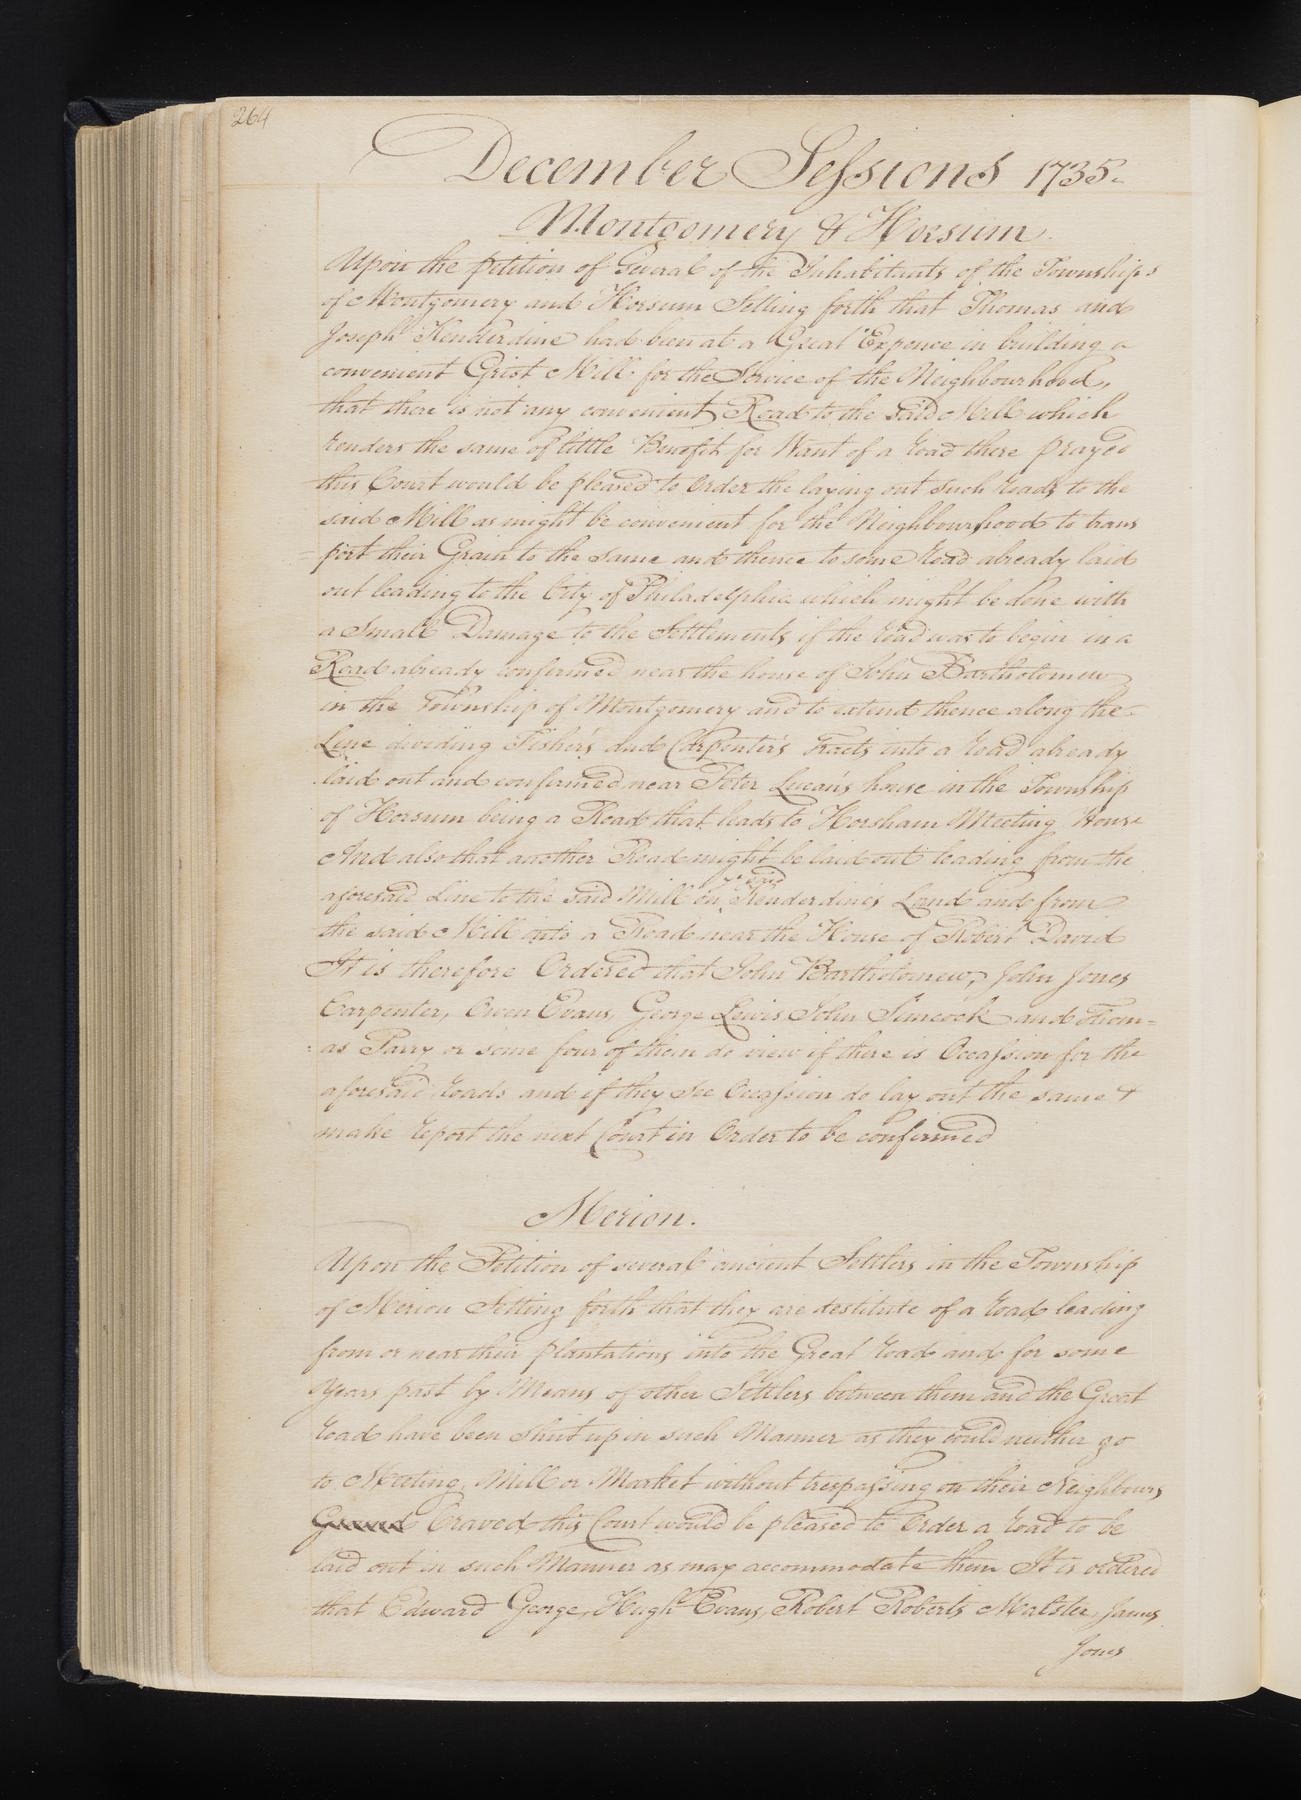 264
December Sessions 1735.
Montgomery & Horsum.
Upon the petition of Several of the Inhabitants of the Townships
of Montgomery and Horsum Setting forth that Thomas and
Joseph Kenderdine had been at a Great Expence in building a
convenient Grist Mill for the Service of the Neighbourhood,
that there is not any convenient Road to the said Mill which
renders the same of little Benefit for Want of a road there prayed
this Court would be pleased to Order the laying out such roads to the
said Mill as might be convenient for the Neighbourhood to trans
=port their Grain to the same and thence to some road already laid
out leading to the City of Philadelphia which might be done with
a Small Damage to the Settlements if the road was to begin in a
Road already confirmed near the house of John Bartholomew
in the Township of Montgomery and to extend thence along the
Line dividing Fisher's and Carpenter's Tracts into a road already
laid out and confirmed near Peter Lucan's house in the Township
of Horsum being a Road that leads to Horsham Meeting House
And also that another Road might be laid out leading from the
ye said
aforesaid Line to the said Mill on Kenderdine's Land and from
the said Mill into a Road near the House of Robert David
It is therefore Ordered that John Bartholomew, John Jones
Carpenter, Owen Evans, George Lewis John Simcock and Thom=
=as Parry or some four of them do view if there is Occassion for the
aforesaid roads and if they see Occassion do lay out the same &
make report the next Court in Order to be confirmed
Merion.
Upon the Petition of several ancient Settlers in the Township
of Merion Setting forth that they are destitute of a road leading
from or near their plantations into the Great road and for some
Years past by Means of other Settlers between them and the Great
road have been Shut up in such Manner as they could neither go
to Meeting, Mill or Market without trespassing on their Neighbours
Craved this Court would be pleased to Order a road to be
laid out in such Manner as may accommodate them It is ordered
that Edward George, Hugh Evans, Robert Roberts Malster, James
Jones